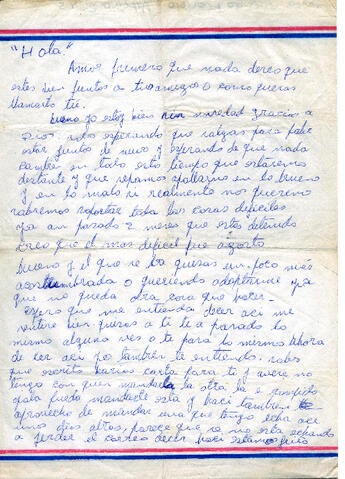 "Hola."
Amor primero que nada deceo que
estes bien juntos a tu amigo o como queras
llamarlo tú.
bueno yo estoy bien sin novedad gracias a
Dios. solo esperando que salgas para poder
estar juntos de nuevo y esperando de que nada
cambie en todo este tiempo que estaremos
distante y que sepamos apollarnos en lo bueno
y en lo malo si realmente nos queremo
sabremos soportar toda las cosas dificiles
ya an pasado 2 meses que estas detenido
creo que el mas dificil fue agosto
bueno y el que se ba quesas un poco más
acostumbrado o queriendo adaptarme ya
que no queda otra cosa que hacer.
espero que me entienda decer aci me
sentire bien quesas a ti te a pasado lo
mismo alguna ves o te pasa lo mismo ahora
de ser aci yo tambien te entiendo. sabes
que escrito barias carta para ti y avere no
tengo con quien mandala la otra la e rompido
ojala pueda mandarte esta y haci tambien
aprovecho de mandar una que tengo echa aci
unos dias altos, parece que ya no esta
a perder el correo decer haci estamos frito